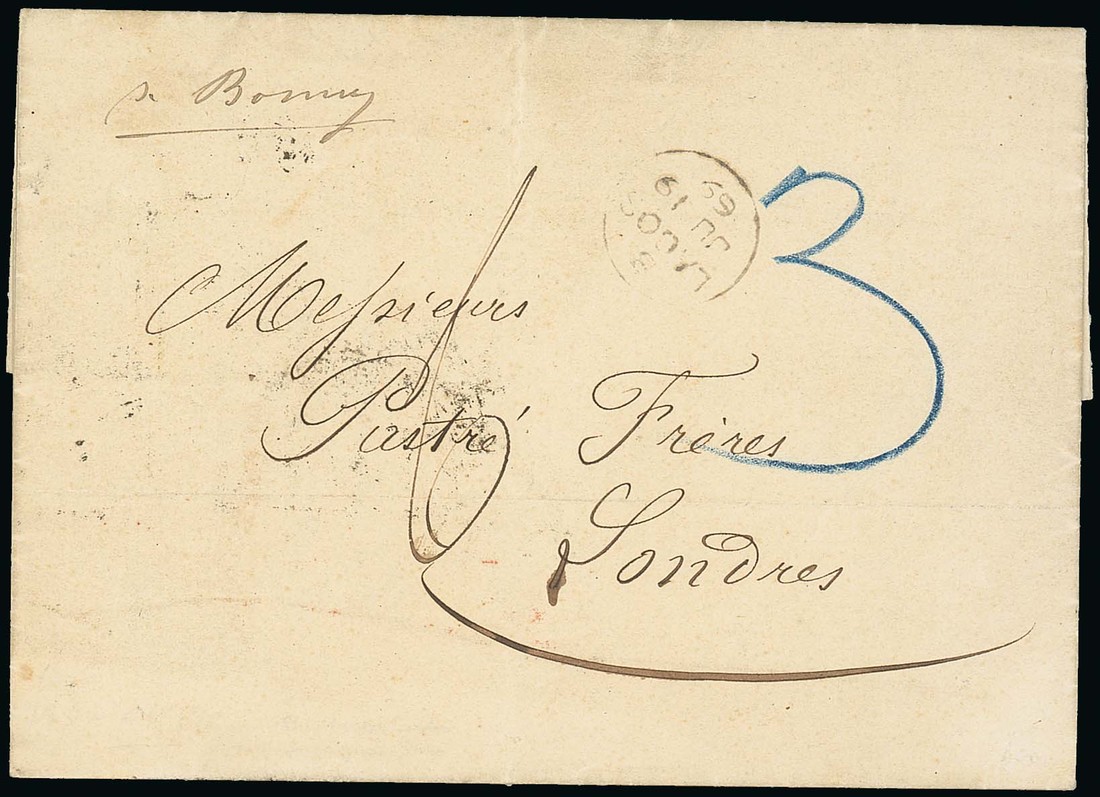 Bonny
LAGOS
B
JU 19
69
3
6
Messieurs
Pastré Frères
Londres